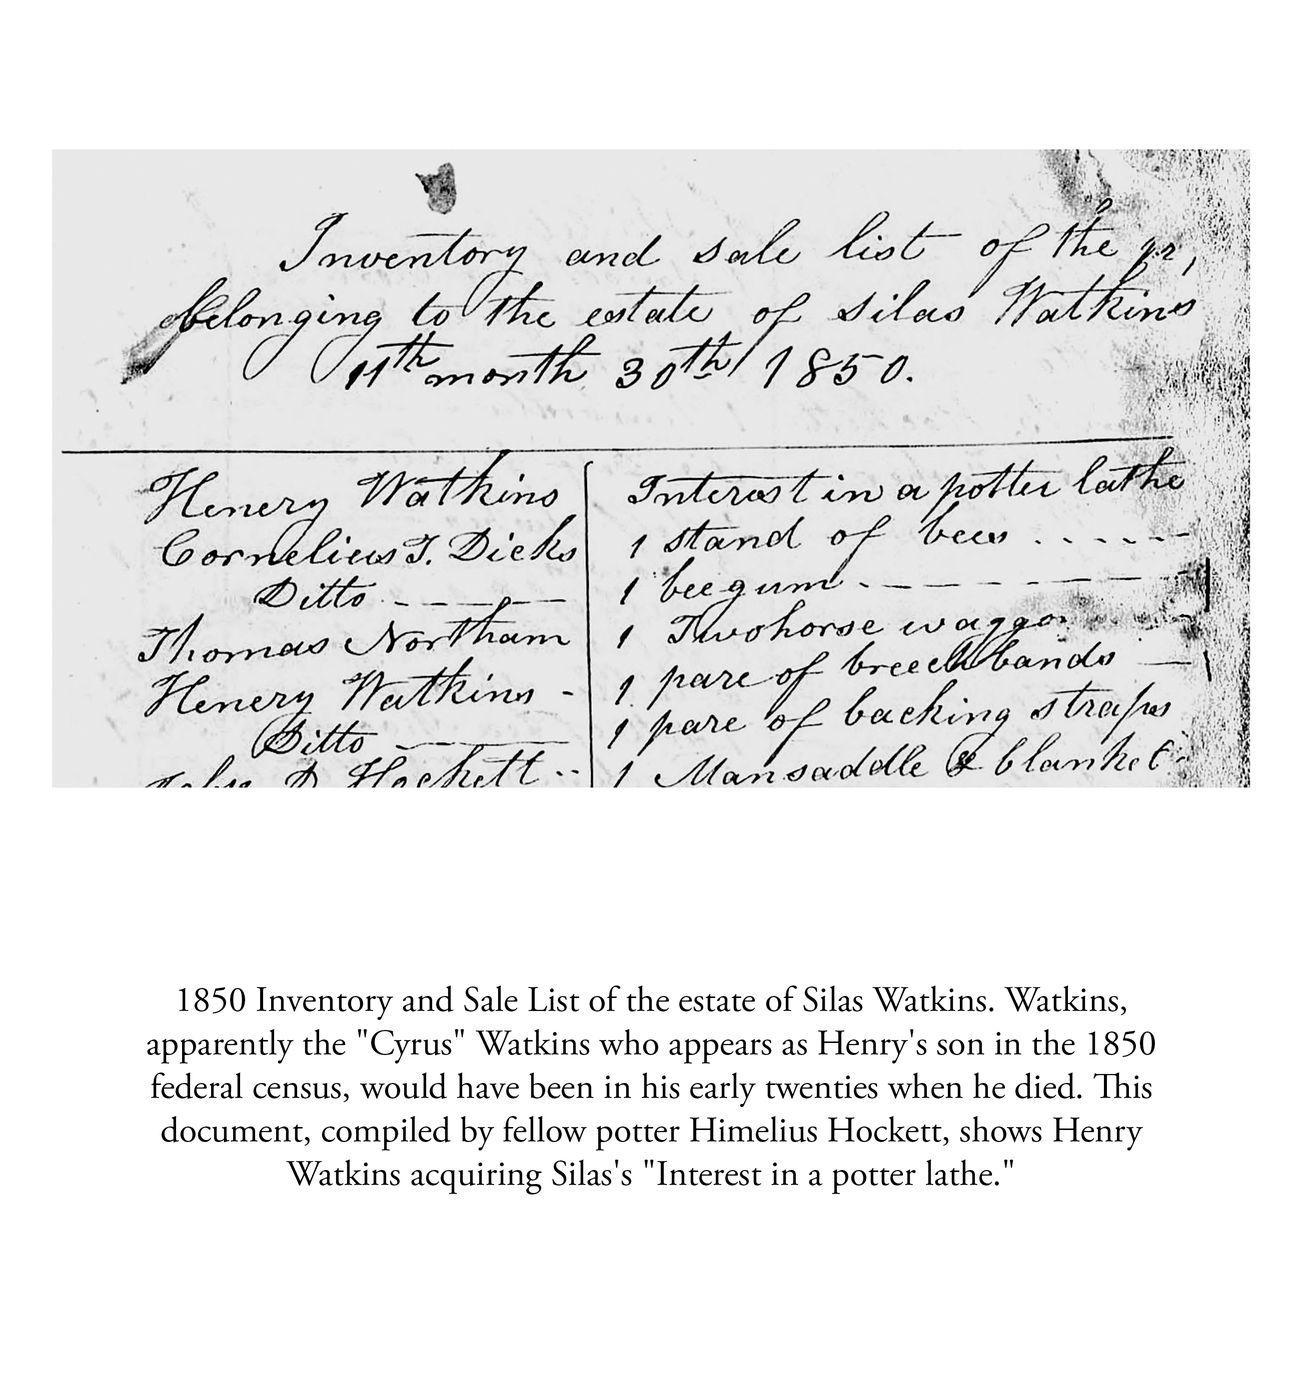 Inventory and sale list of the
belonging to the estate of Silas Watkins
11th month 30th 1850.
Henery Watkins Interest in a potter lathe
Cornelius T. Dicks 1 stand of bees . . . . . - -
Ditto - - - - - - 1 bee gum - - - - - - -
Thomas Northam 1 Twohorse waggon
Henery Watkins - 1 pare of breech bands —
Ditto - —— 1 pare of backing straps
D. Hockett - - 1 Mansaddle & blanket
1850 Inventory and Sale List of the estate of Silas Watkins. Watkins,
apparently the "Cyrus" Watkins who appears as Henry's son in the 1850
federal census, would have been in his early twenties when he died. This
document, compiled by fellow potter Himelius Hockett, shows Henry
Watkins acquiring Silas's "Interest in a potter lathe."